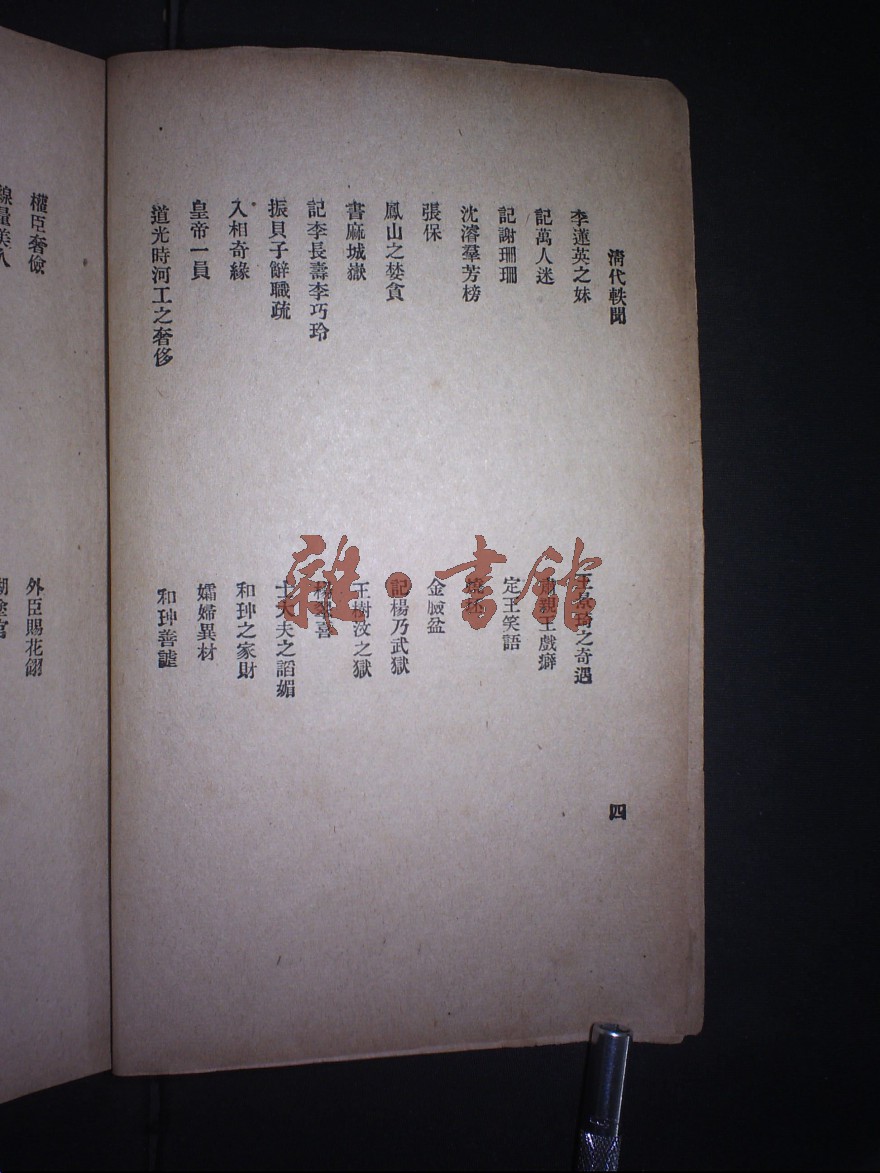 清代軼聞
四
李蓮英之妹
記萬人迷
記謝珊珊
沈濬羣芳榜
張保
鳳山之婪貪
書麻城獄
記李長壽李巧玲
振貝子辭職疏
入相奇緣
皇帝一員
道光時河工之奢侈
之奇遇
肅親王戲癖
定王笑語
金臉盆
記楊乃武獄
王樹汶之獄
喜
士大夫之諂媚
和珅之家財
孀婦異材
和珅善謔
權臣奢儉
外臣賜花翎
雜·書館